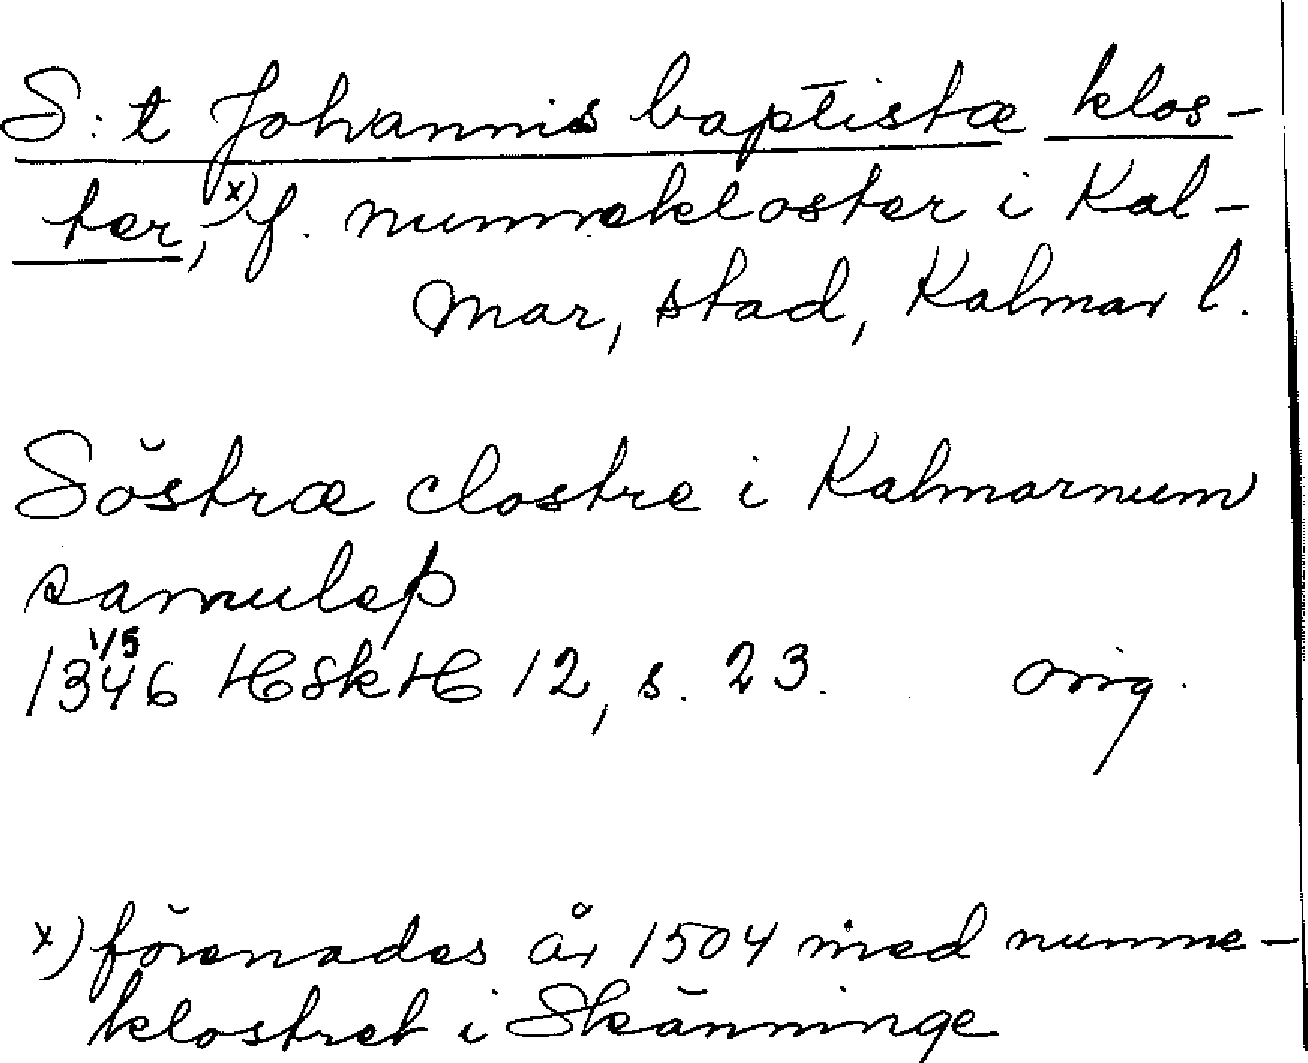 S:t Johannis baptistæ klos-
ter, x) f. nunnekloster i Kal-
mar, stad, Kalmar l.
Söstræ clostre i Kalmarnum
samuleþ
1346 1/5 HSkH 12, s. 23. orig.
x) förenades år 1504 med nunne-
klostret i Skänninge